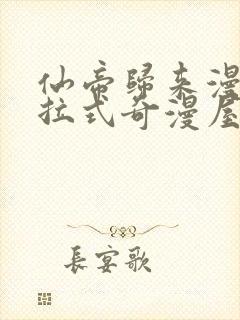 仙帝歸来漫
拉式奇漫屋
長宴歌